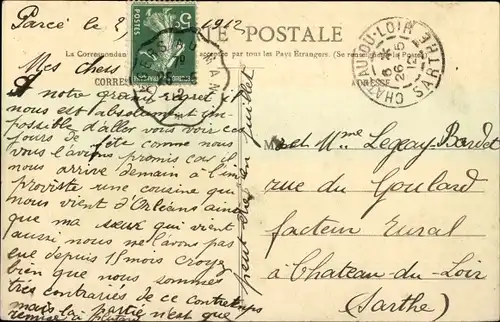 Parcé le 1912
CARTE POSTALE
La Correspondance accepté par tous les Pays Etrangers. (Se renseigner à la Poste)
CORRES ADRESSE
POSTES 5
CHATEAU-DU-LOIR
26 -5
12
SARTHE
Mes chers
A notre grand regret il
nous est absolument im
possible d'aller vous voir ces
jours de fête comme nous
vous l'avions promis car il
nous arrive demain à l'im
proviste une cousine qui
nous vient d'Orléans ainsi
que ma sœur qui vient
aussi, nous ne l'avons pas
vue depuis 18 mois croyez
bien que nous sommes
très contrariés de ce contretemps
mais la partie n'est que
remise à
peut-être en juillet
M et Mme Legeay-Bardet
rue du Goulard
facteur rural
à Chateau-du-Loir
(Sarthe)